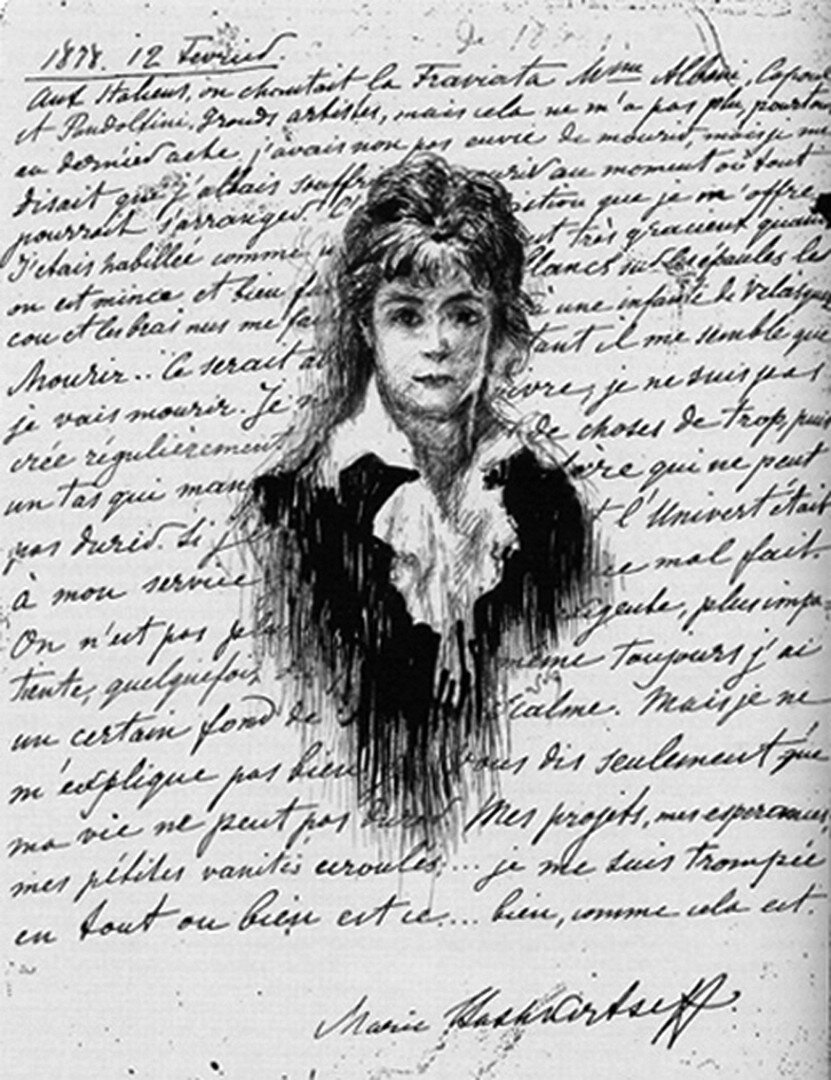 1878. 12 Fevrier.
Aux Italiens, on chantait la Traviata Mme Albani, Capoul
et Pandolfini. Grands artistes, mais cela ne m'a pas plu, pourtant
au dernier acte, j'avais non pas envie de mourir, mais je me
disait que j'allais souffrir au moment où tout
pourrait s'arranger. que je m'offre
J'étais habillée comme très gracieux quand
on est mince et bien blancs sur les épaules le
cou et les bras nus me à une infante de Velasquez
Mourir.. Ce serait tant il me semble que
je vais mourir. Je vivre, je ne suis pas
crée régulièrement de choses de trop, puis
un tas qui man qui ne peut
pas durer. Si l'Univert était
à mon service ce mal fait
On n'est pas plus plus impa-
tiente, quelquefois même toujours j'ai
un certain fond de calme. Mais je ne
m'explique pas bien vous dis seulement que
ma vie ne peut pas durer Mes projets, mes esperances,
mes pétites vanités ecroulés.... je me suis trompée
en tout ou bien est ce.... bien, comme cela est.
Marie Bashkirtseff.